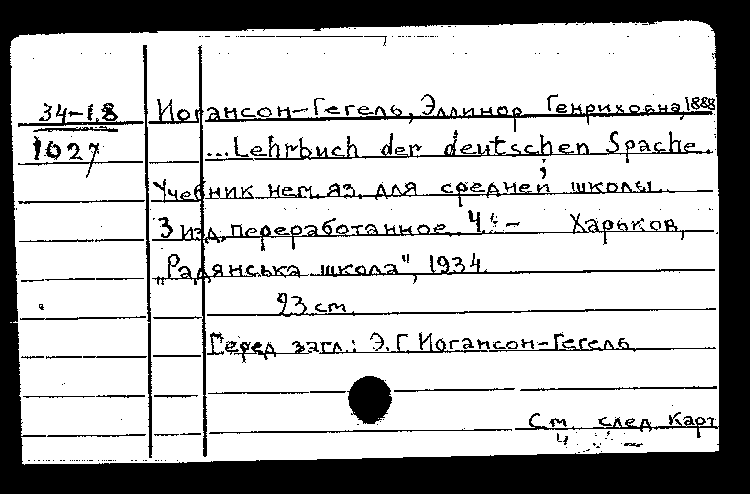 34-18 Иогансон-Гегель, Эллинор Генриховна, 1888
1027 ...Lehrbuch der deutschen Spache.
Учебник нем. яз. для средней школы.
3 изд. переработанное. Ч. - Харьков,
„Радянська школа", 1934.
23 cm.
Перед загл.: Э. Г. Иогансон-Гегель
См. след. карт